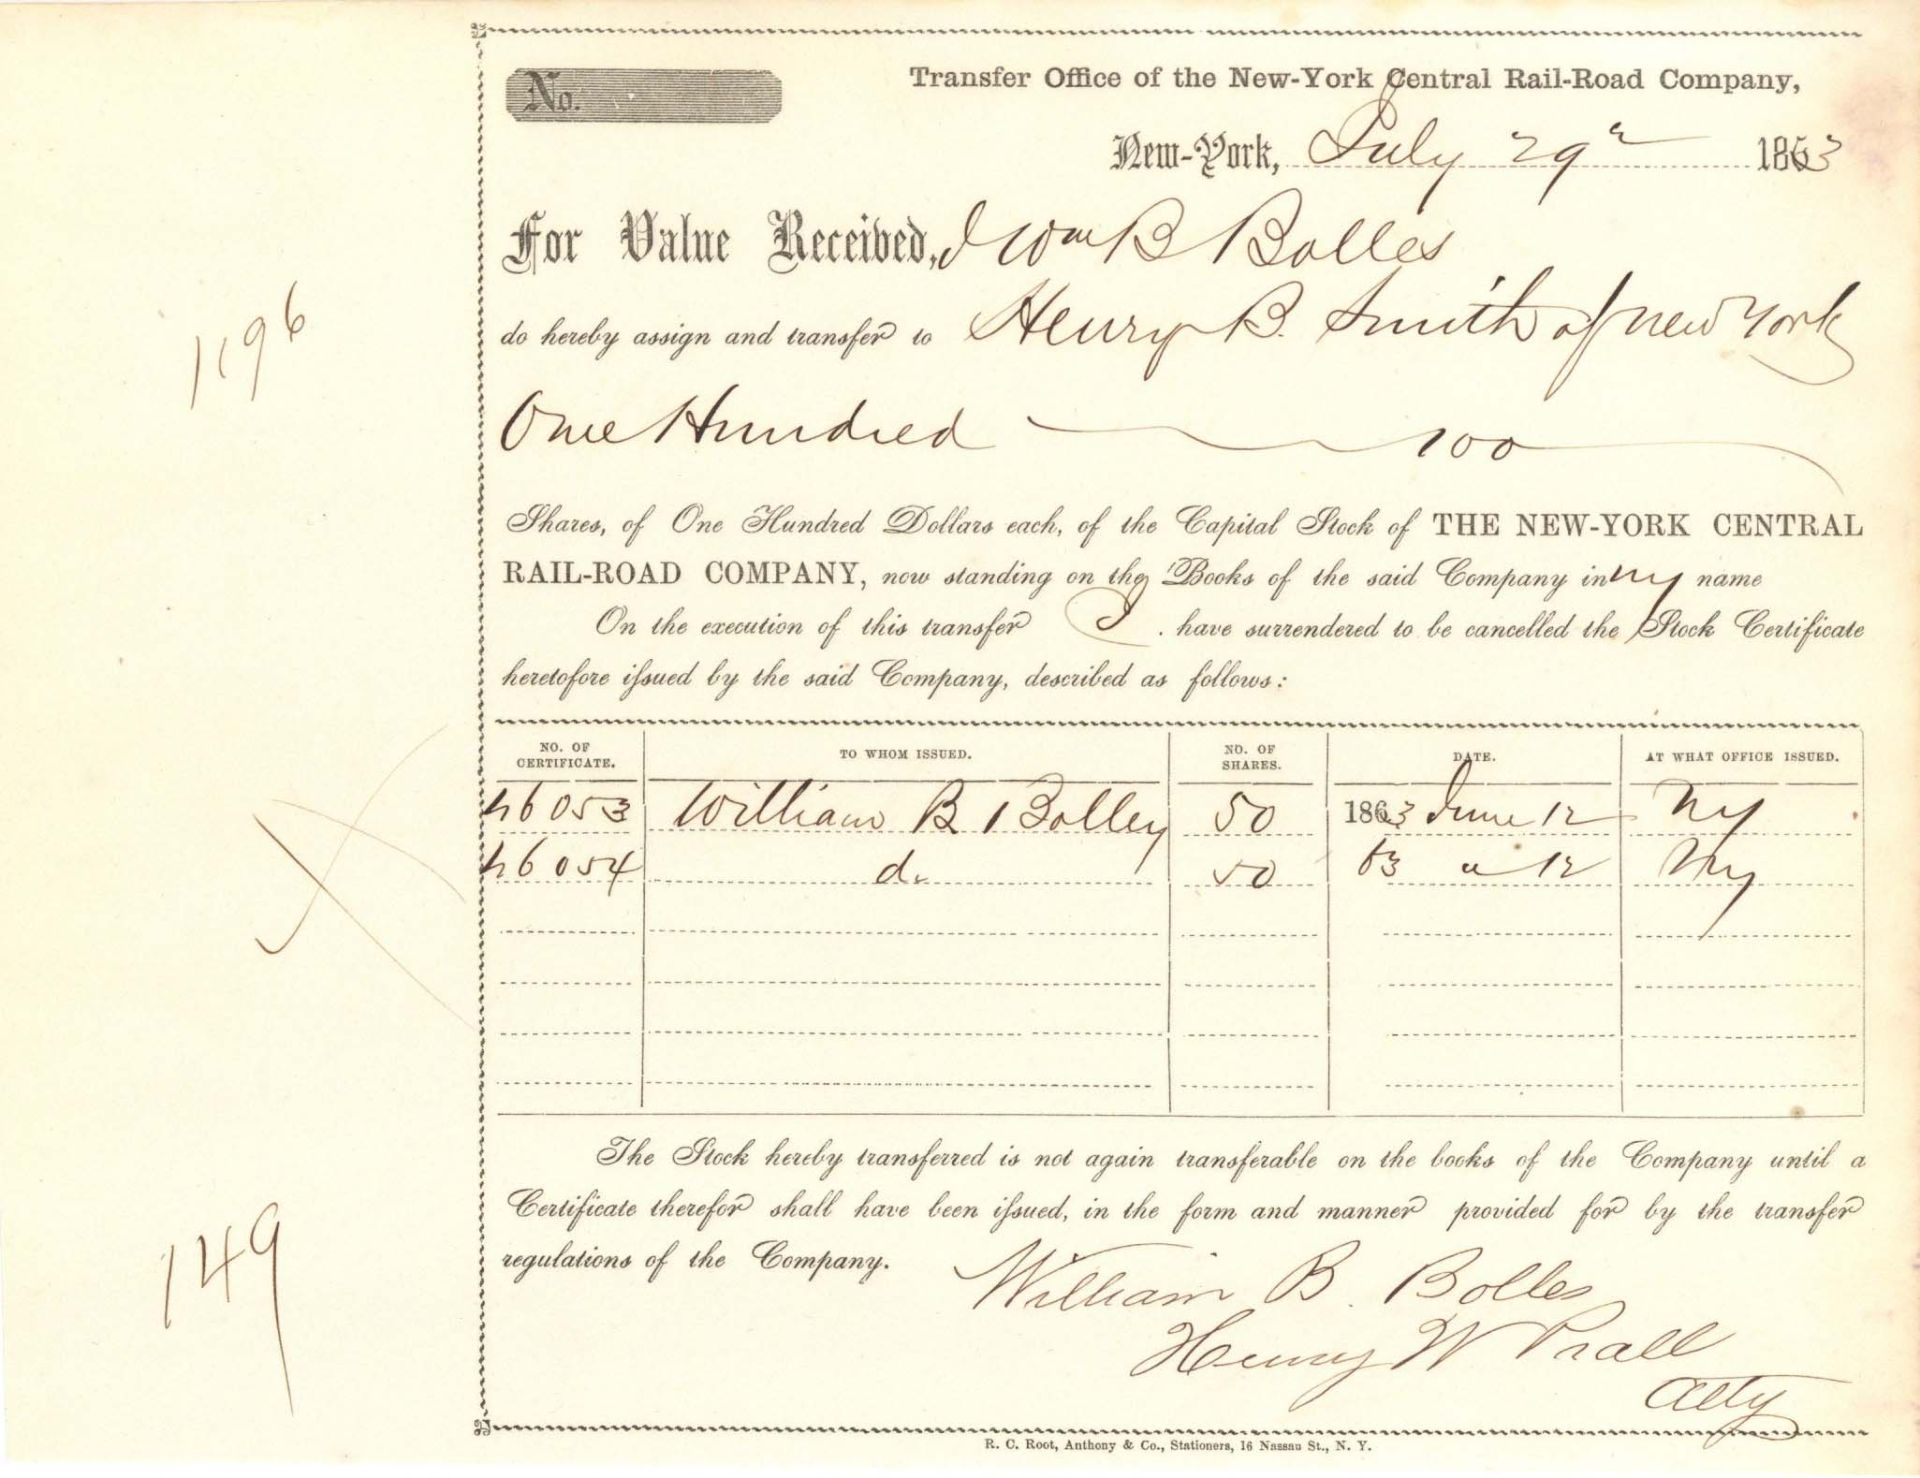 No.
Transfer Office of the New-York Central Rail-Road Company,
New-York, July 29 1863
For Value Received, I Wm B Bolles
do hereby assign and transfer to Henry B. Smith of New York
One Hundred 100
Shares, of One Hundred Dollars each, of the Capital Stock of THE NEW-YORK CENTRAL
RAIL-ROAD COMPANY, now standing on the Books of the said Company in my name
On the execution of this transfer I have surrendered to be cancelled the Stock Certificate
heretofore issued by the said Company, described as follows:
NO. OF CERTIFICATE. TO WHOM ISSUED. NO. OF SHARES. DATE. AT WHAT OFFICE ISSUED.
46053 William B Bolles 50 1863 June 12 NY
46054 do 50 63 " 12 NY
The Stock hereby transferred is not again transferable on the books of the Company until a
Certificate therefor shall have been issued, in the form and manner provided for by the transfer
regulations of the Company.
William B. Bolles
Henry W Prall
Atty
R. C. Root, Anthony & Co., Stationers, 16 Nassau St., N. Y.
1196
149